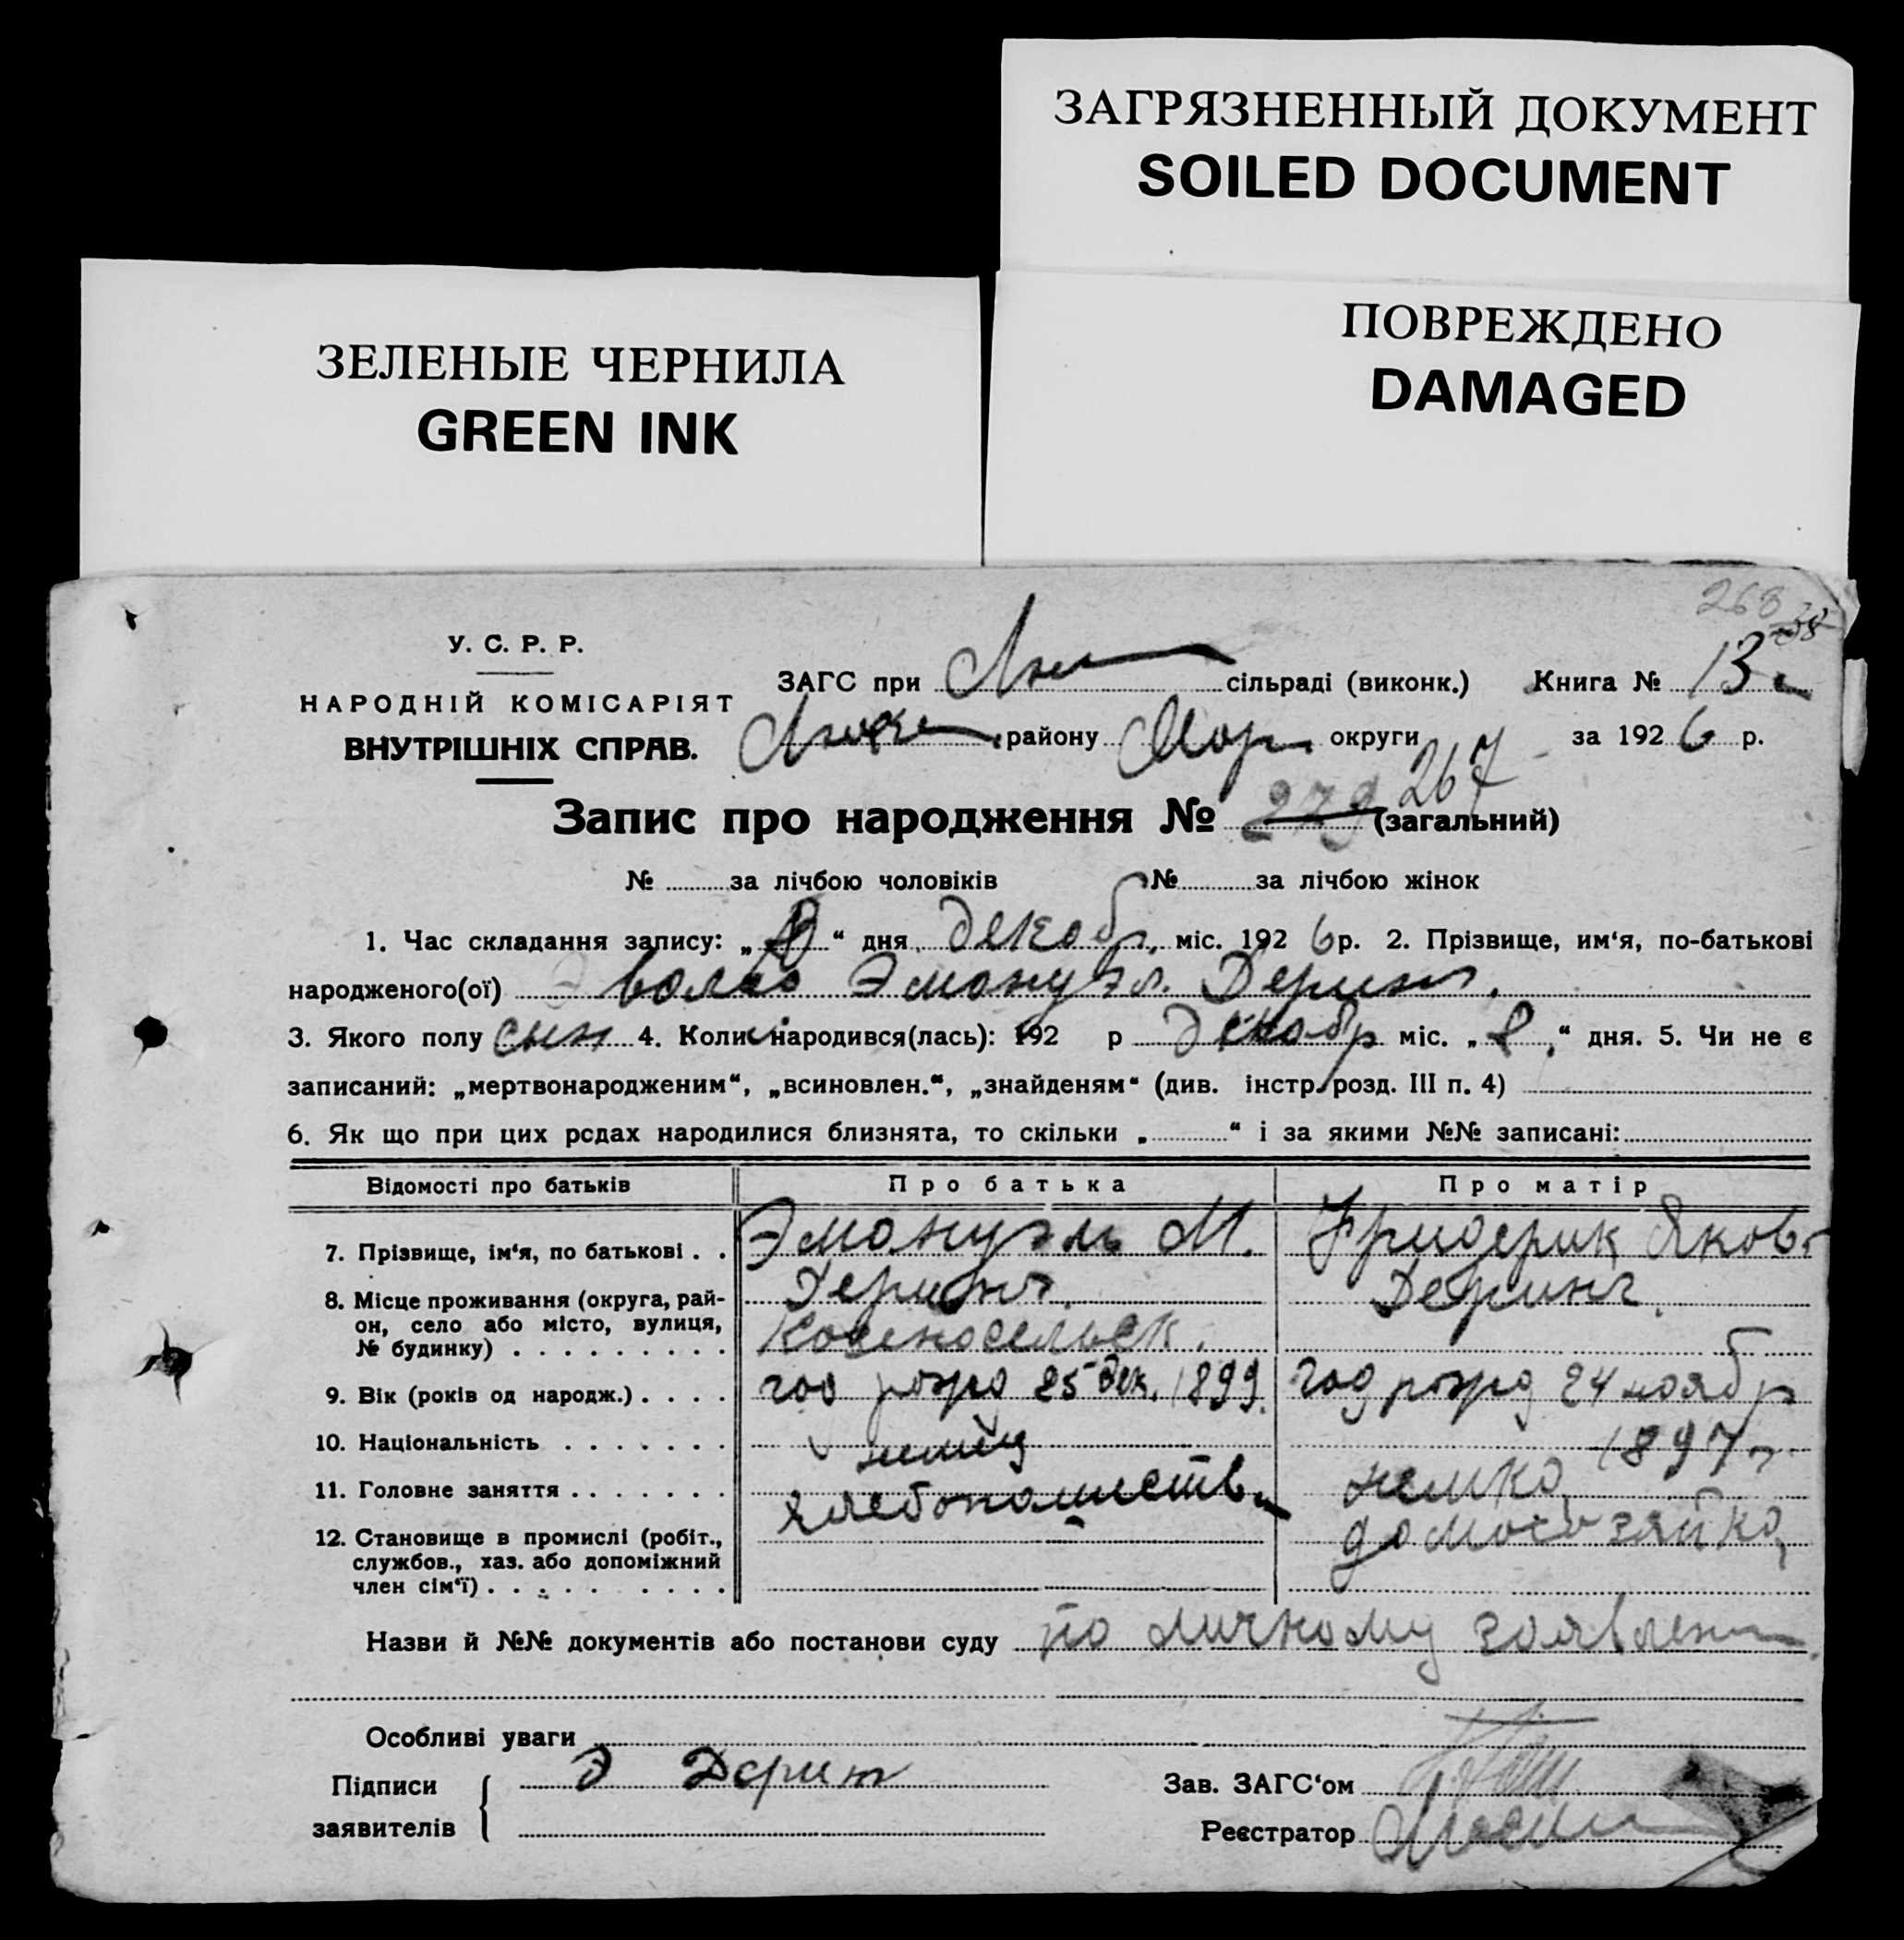 ЗАГРЯЗНЕННЫЙ ДОКУМЕНТ
SOILED DOCUMENT
ЗЕЛЕНЫЕ ЧЕРНИЛА
GREEN INK
ПОВРЕЖДЕНО
DAMAGED
268
У. С. Р. Р.
НАРОДНІЙ КОМІСАРІЯТ
ВНУТРІШНІХ СПРАВ.
ЗАГС при сільраді (виконк.) Книга № 13
району округи за 1926 р.
Запис про народження № 279 267 (загальний)
№ за лічбою чоловіків № за лічбою жінок
1. Час складання запису: „ “ дня декабр. міс. 1926 р. 2. Прізвище, им‘я, по-батькові
народженого(ої) Эмануэл. Деринг.
3. Якого полу сын 4. Коли народився(лась): 192 р декабр міс. „8“ дня. 5. Чи не є
записаний: „мертвонародженим“, „всиновлен.“, „знайденям“ (див. інстр. розд. III п. 4)
6. Як що при цих родах народилися близнята, то скільки „ “ і за якими №№ записані:
Відомості про батьків Про батька Про матір
7. Прізвище, ім‘я, по батькові . . Эмануэль М. Фридерик Яковл
Деринг. Деринг.
8. Місце проживання (округа, рай-
он, село або місто, вулиця,
№ будинку) . . . . . . . . .
9. Вік (років од народж.) . . . . год рожд 25 дек. 1899. год рожд 24 ноябр
1897 г.
10. Національність . . . . . . . немец немка
11. Головне заняття . . . . . . . хлебопашеств. домохозяйка
12. Становище в промислі (робіт.,
службов., хаз. або допоміжний
член сім‘ї) . . . . . . . . . .
Назви й №№ документів або постанови суду по личному заявлени
Особливі уваги
Підписи
заявителів
Э Деринг
Зав. ЗАГС‘ом
Реєстратор